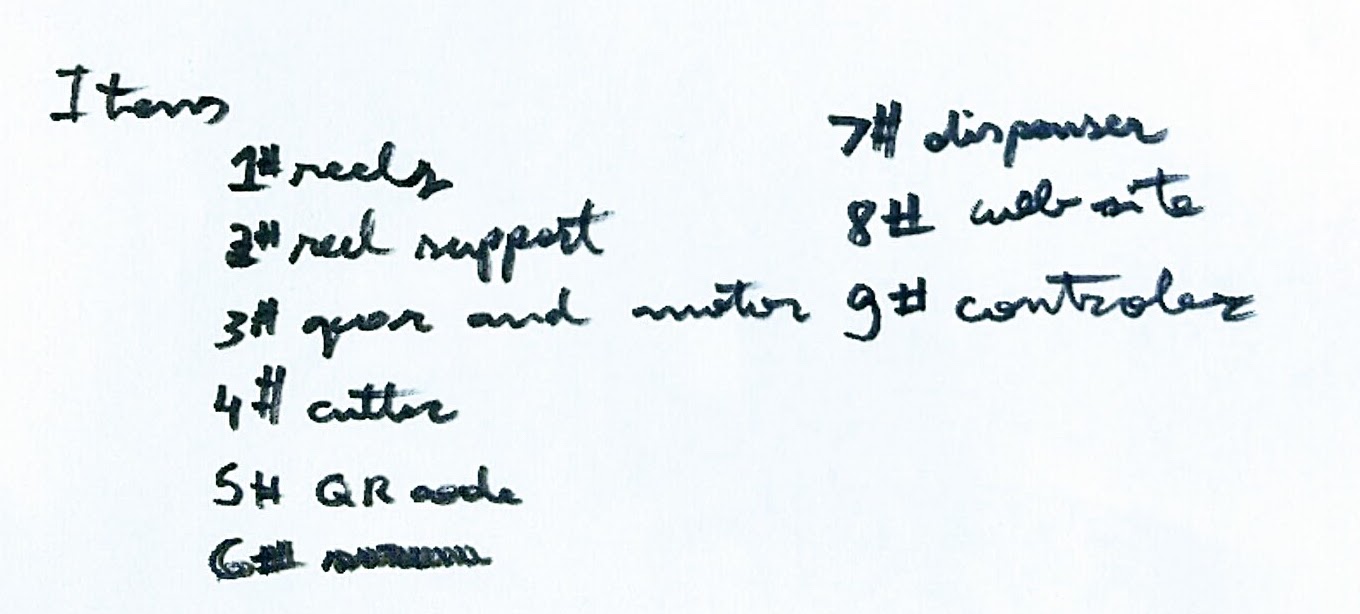 Items
1# reels
2# reel support
3# gear and motor
4# cutter
5# QR code
6#
7# dispenser
8# web site
9# controler